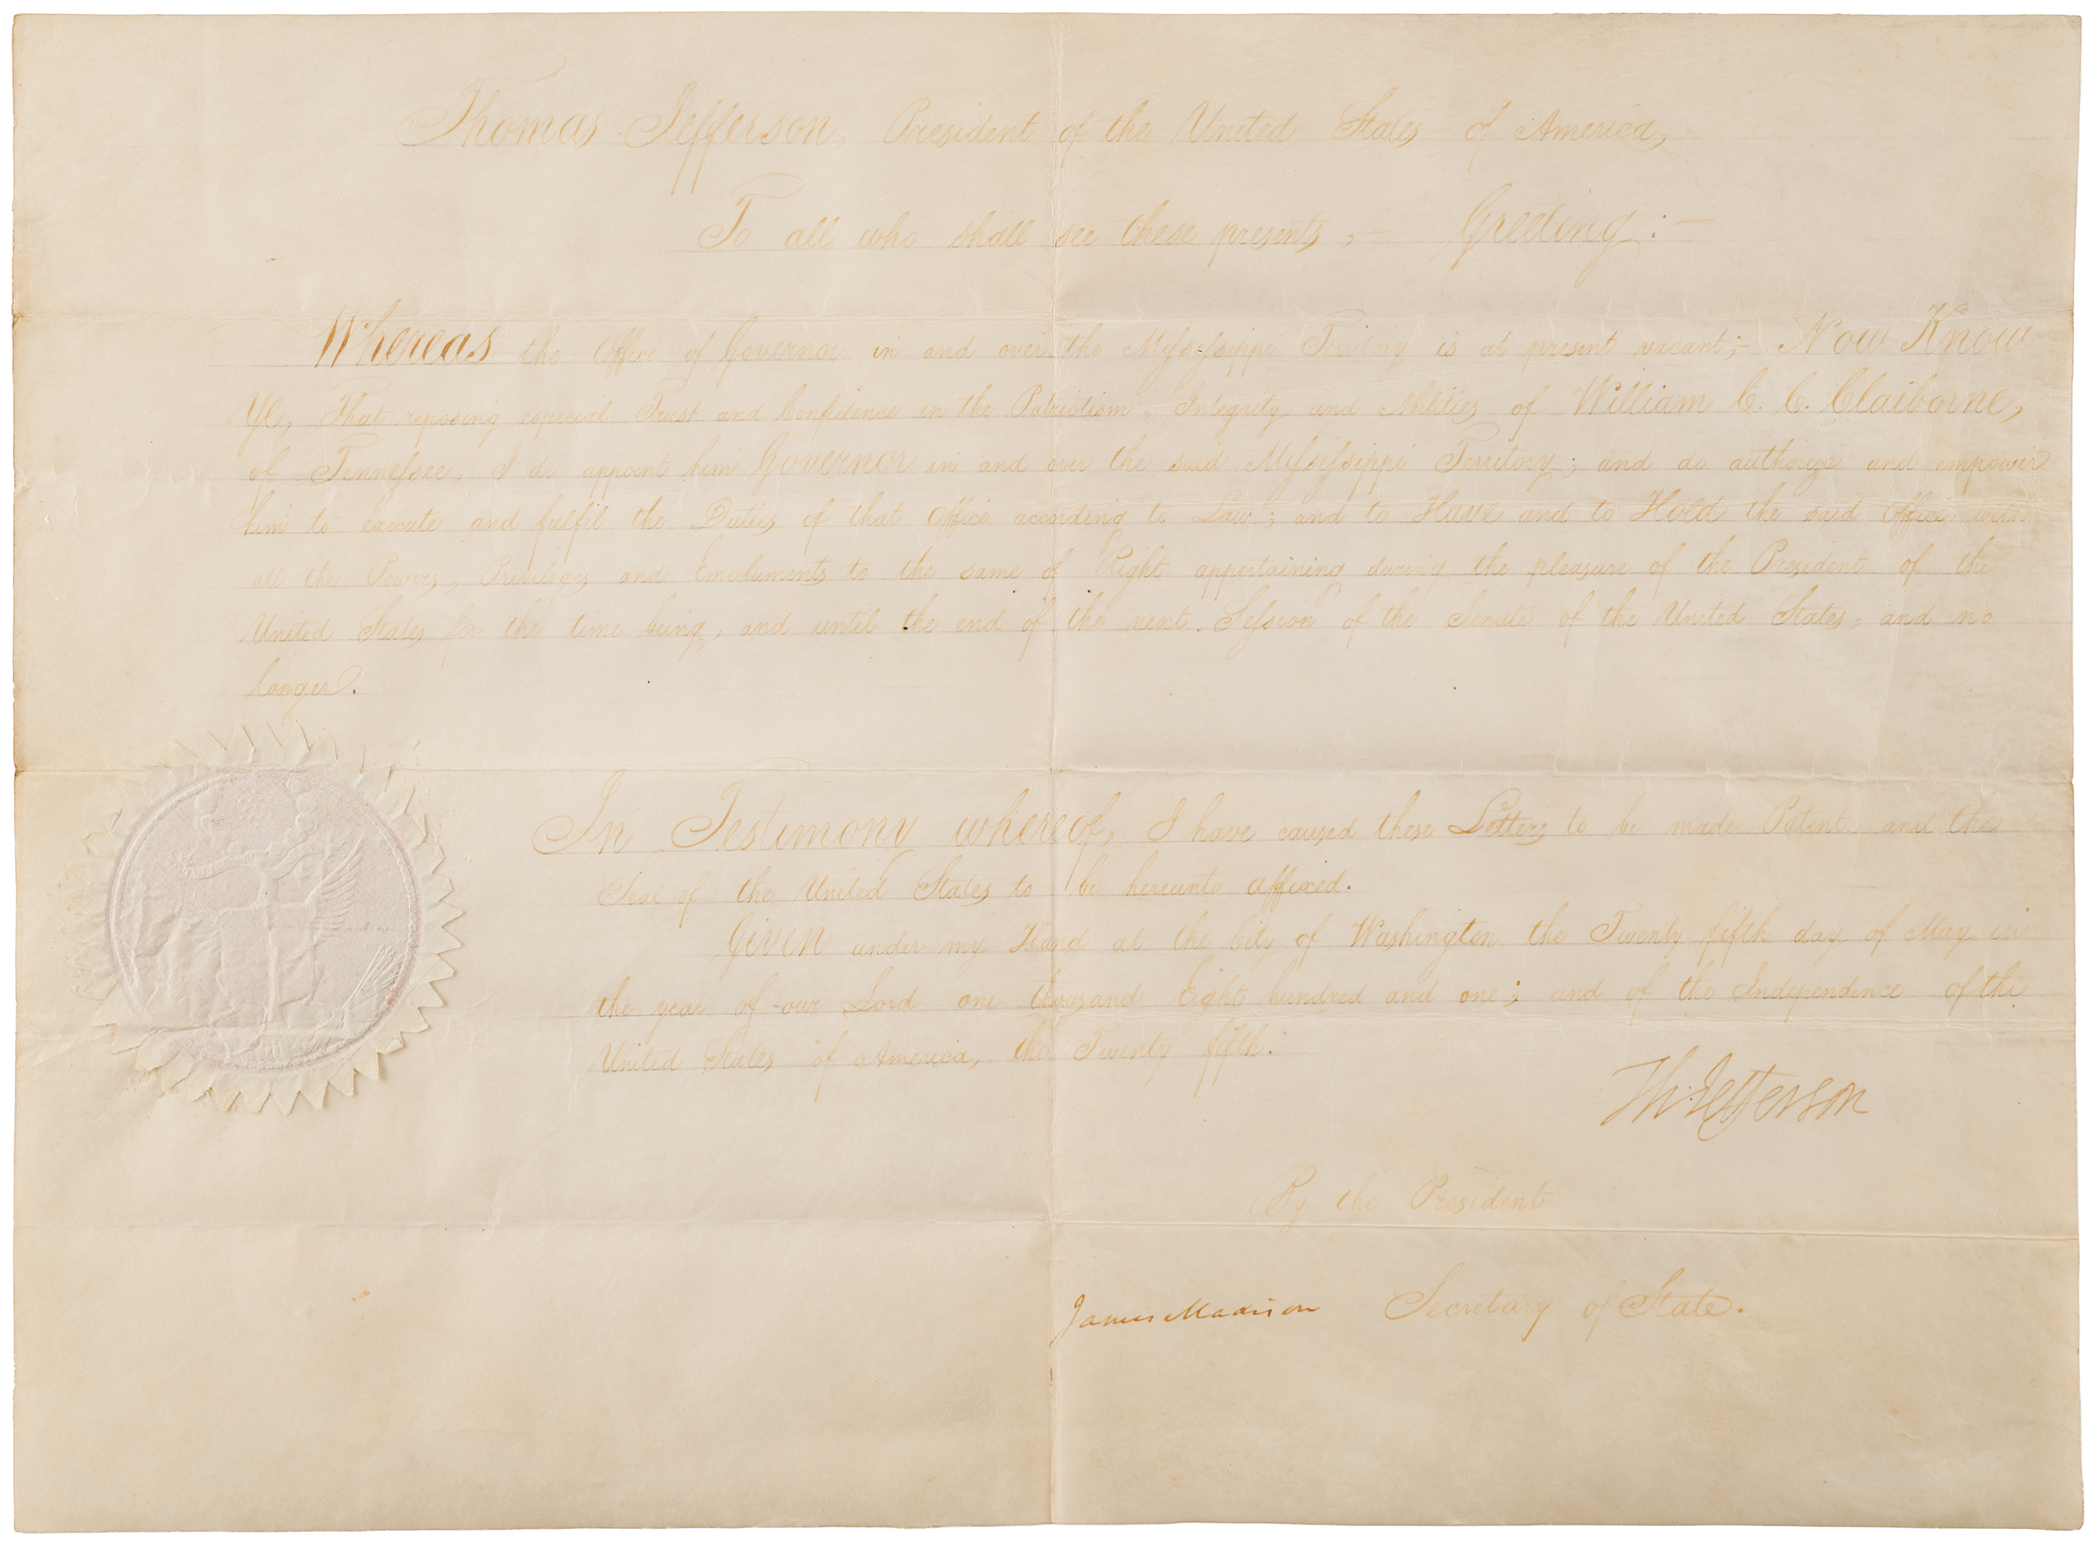 Thomas Jefferson, President of the United States of America,
To all who shall see these presents, — Greeting: —
Whereas the Office of Governor in and over the Missisippi Territory is at present vacant; — Now Know
Ye, That reposing especial Trust and Confidence in the Patriotism, Integrity and Abilities of William C. C. Claiborne,
of Tennessee, I do appoint him Governor in and over the said Missisippi Territory; and do authorize and empower
him to execute and fulfil the Duties of that Office according to Law; and to Have and to Hold the said Office with
all the Powers, Privileges and Emoluments to the same of Right appertaining during the pleasure of the President of the
United States for the time being, and until the end of the next Session of the Senate of the United States, and no
longer.
In Testimony whereof, I have caused these Letters to be made Patent and the
Seal of the United States to be hereunto affixed.
Given under my Hand at the City of Washington the Twenty fifth day of May in
the year of our Lord one thousand Eight hundred and one; and of the Independence of the
United States of America, the Twenty fifth.
Th: Jefferson
By the President
James Madison Secretary of State.